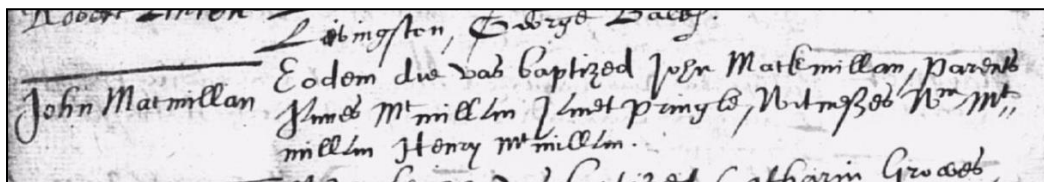 Livingston, George
John Macmillan
Eodem die vas baptized John Mackmillan, Parents
James Mc millan Janet Pringle, Witnesses Wm Mc„
millan Henry mc millan.
baptized Catharin Groves,